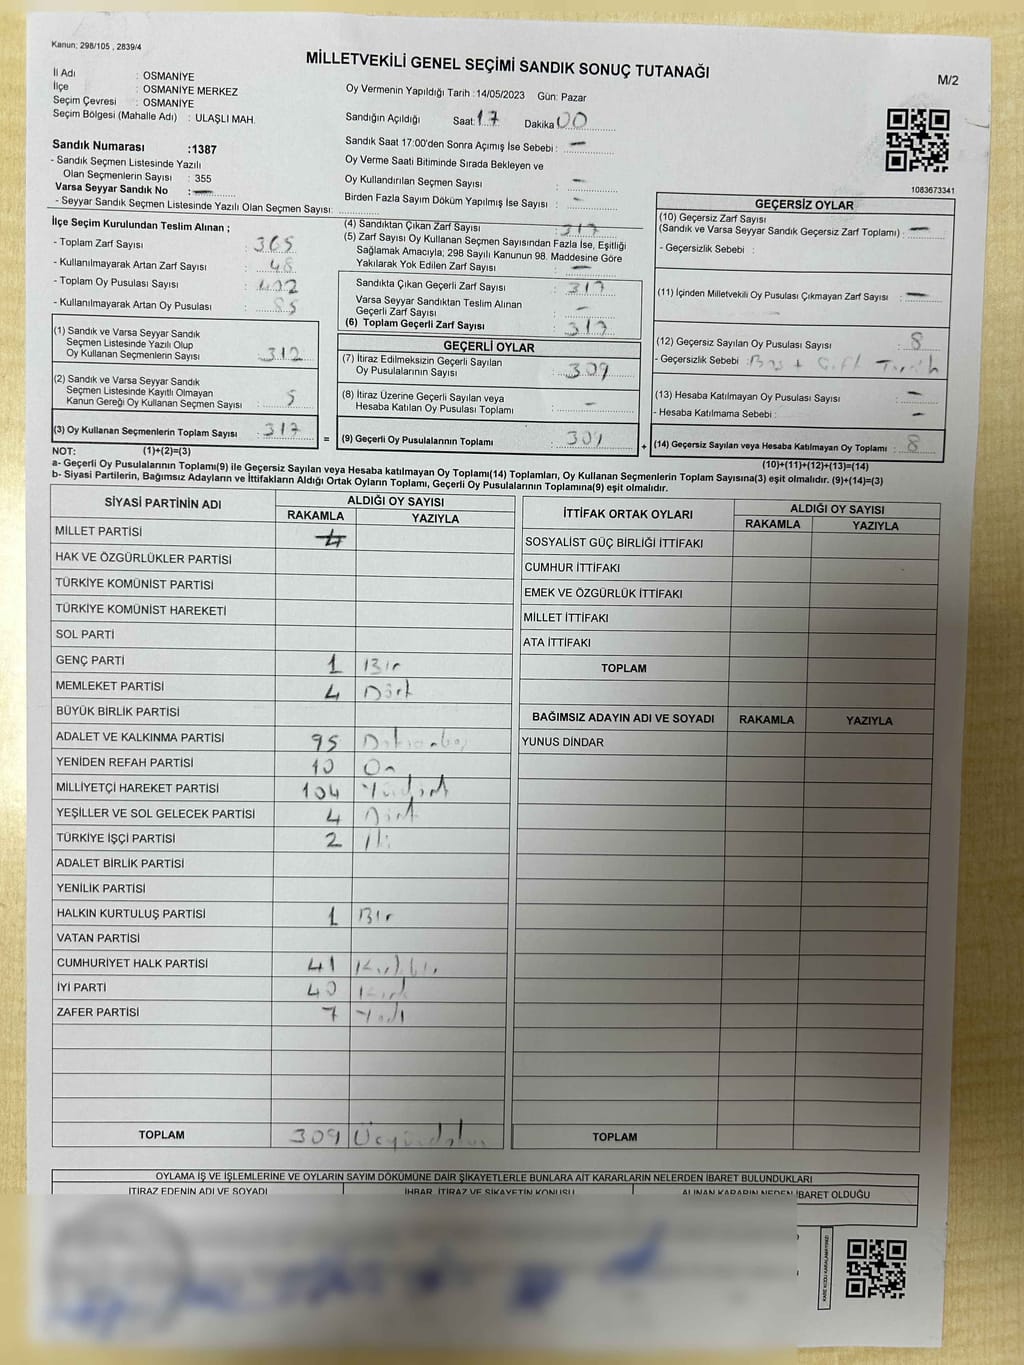 Kanun; 298/105 , 2839/4
MİLLETVEKİLİ GENEL SEÇİMİ SANDIK SONUÇ TUTANAĞI
M/2
İl Adı : OSMANİYE
İlçe : OSMANİYE MERKEZ
Seçim Çevresi : OSMANİYE
Seçim Bölgesi (Mahalle Adı) : ULAŞLI MAH.
Sandık Numarası :1387
- Sandık Seçmen Listesinde Yazılı
Olan Seçmenlerin Sayısı : 355
Varsa Seyyar Sandık No : —
- Seyyar Sandık Seçmen Listesinde Yazılı Olan Seçmen Sayısı:
Oy Vermenin Yapıldığı Tarih :14/05/2023 Gün: Pazar
Sandığın Açıldığı Saat: 17 Dakika 00
Sandık Saat 17:00'den Sonra Açımış İse Sebebi : —
Oy Verme Saati Bitiminde Sırada Bekleyen ve
Oy Kullandırılan Seçmen Sayısı : —
Birden Fazla Sayım Döküm Yapılmış İse Sayısı : —
1083673341
İlçe Seçim Kurulundan Teslim Alınan ;
- Toplam Zarf Sayısı : 365
- Kullanılmayarak Artan Zarf Sayısı : 48
- Toplam Oy Pusulası Sayısı : 402
- Kullanılmayarak Artan Oy Pusulası : 85
(1) Sandık ve Varsa Seyyar Sandık
Seçmen Listesinde Yazılı Olup
Oy Kullanan Seçmenlerin Sayısı : 312
(2) Sandık ve Varsa Seyyar Sandık
Seçmen Listesinde Kayıtlı Olmayan
Kanun Gereği Oy Kullanan Seçmen Sayısı : 5
(3) Oy Kullanan Seçmenlerin Toplam Sayısı : 317
(4) Sandıktan Çıkan Zarf Sayısı : 317
(5) Zarf Sayısı Oy Kullanan Seçmen Sayısından Fazla İse, Eşitliği
Sağlamak Amacıyla; 298 Sayılı Kanunun 98. Maddesine Göre
Yakılarak Yok Edilen Zarf Sayısı : —
Sandıkta Çıkan Geçerli Zarf Sayısı : 317
Varsa Seyyar Sandıktan Teslim Alınan
Geçerli Zarf Sayısı : —
(6) Toplam Geçerli Zarf Sayısı : 317
GEÇERLİ OYLAR
(7) İtiraz Edilmeksizin Geçerli Sayılan
Oy Pusulalarının Sayısı : 309
(8) İtiraz Üzerine Geçerli Sayılan veya
Hesaba Katılan Oy Pusulası Toplamı : —
= (9) Geçerli Oy Pusulalarının Toplamı : 309
GEÇERSİZ OYLAR
(10) Geçersiz Zarf Sayısı
(Sandık ve Varsa Seyyar Sandık Geçersiz Zarf Toplamı) : —
- Geçersizlik Sebebi :
(11) İçinden Milletvekili Oy Pusulası Çıkmayan Zarf Sayısı : —
(12) Geçersiz Sayılan Oy Pusulası Sayısı : 8
- Geçersizlik Sebebi : Boş + Çift
(13) Hesaba Katılmayan Oy Pusulası Sayısı : —
- Hesaba Katılmama Sebebi : —
+ (14) Geçersiz Sayılan veya Hesaba Katılmayan Oy Toplamı : 8
NOT: (1)+(2)=(3)
(10)+(11)+(12)+(13)=(14)
a- Geçerli Oy Pusulalarının Toplamı(9) ile Geçersiz Sayılan veya Hesaba katılmayan Oy Toplamı(14) Toplamları, Oy Kullanan Seçmenlerin Toplam Sayısına(3) eşit olmalıdır. (9)+(14)=(3)
b- Siyasi Partilerin, Bağımsız Adayların ve İttifakların Aldığı Ortak Oyların Toplamı, Geçerli Oy Pusulalarının Toplamına(9) eşit olmalıdır.
SİYASİ PARTİNİN ADI ALDIĞI OY SAYISI
RAKAMLA YAZIYLA
MİLLET PARTİSİ
HAK VE ÖZGÜRLÜKLER PARTİSİ
TÜRKİYE KOMÜNİST PARTİSİ
TÜRKİYE KOMÜNİST HAREKETİ
SOL PARTİ
GENÇ PARTİ 1 Bir
MEMLEKET PARTİSİ 4 Dört
BÜYÜK BİRLİK PARTİSİ
ADALET VE KALKINMA PARTİSİ 95 Doksanbeş
YENİDEN REFAH PARTİSİ 10 On
MİLLİYETÇİ HAREKET PARTİSİ 104 Yüzdört
YEŞİLLER VE SOL GELECEK PARTİSİ 4 Dört
TÜRKİYE İŞÇİ PARTİSİ 2 İki
ADALET BİRLİK PARTİSİ
YENİLİK PARTİSİ
HALKIN KURTULUŞ PARTİSİ 1 Bir
VATAN PARTİSİ
CUMHURİYET HALK PARTİSİ 41 Kırkbir
İYİ PARTİ 40 Kırk
ZAFER PARTİSİ 7 Yedi
TOPLAM 309 Üçyüzdokuz
İTTİFAK ORTAK OYLARI ALDIĞI OY SAYISI
RAKAMLA YAZIYLA
SOSYALİST GÜÇ BİRLİĞİ İTTİFAKI
CUMHUR İTTİFAKI
EMEK VE ÖZGÜRLÜK İTTİFAKI
MİLLET İTTİFAKI
ATA İTTİFAKI
TOPLAM
BAĞIMSIZ ADAYIN ADI VE SOYADI RAKAMLA YAZIYLA
YUNUS DİNDAR
TOPLAM
OYLAMA İŞ VE İŞLEMLERİNE VE OYLARIN SAYIM DÖKÜMÜNE DAİR ŞİKAYETLERLE BUNLARA AİT KARARLARIN NELERDEN İBARET BULUNDUKLARI
İTİRAZ EDENİN ADI VE SOYADI İHBAR, İTİRAZ VE ŞİKAYETİN KONUSU ALINAN KARARIN NEDEN İBARET OLDUĞU